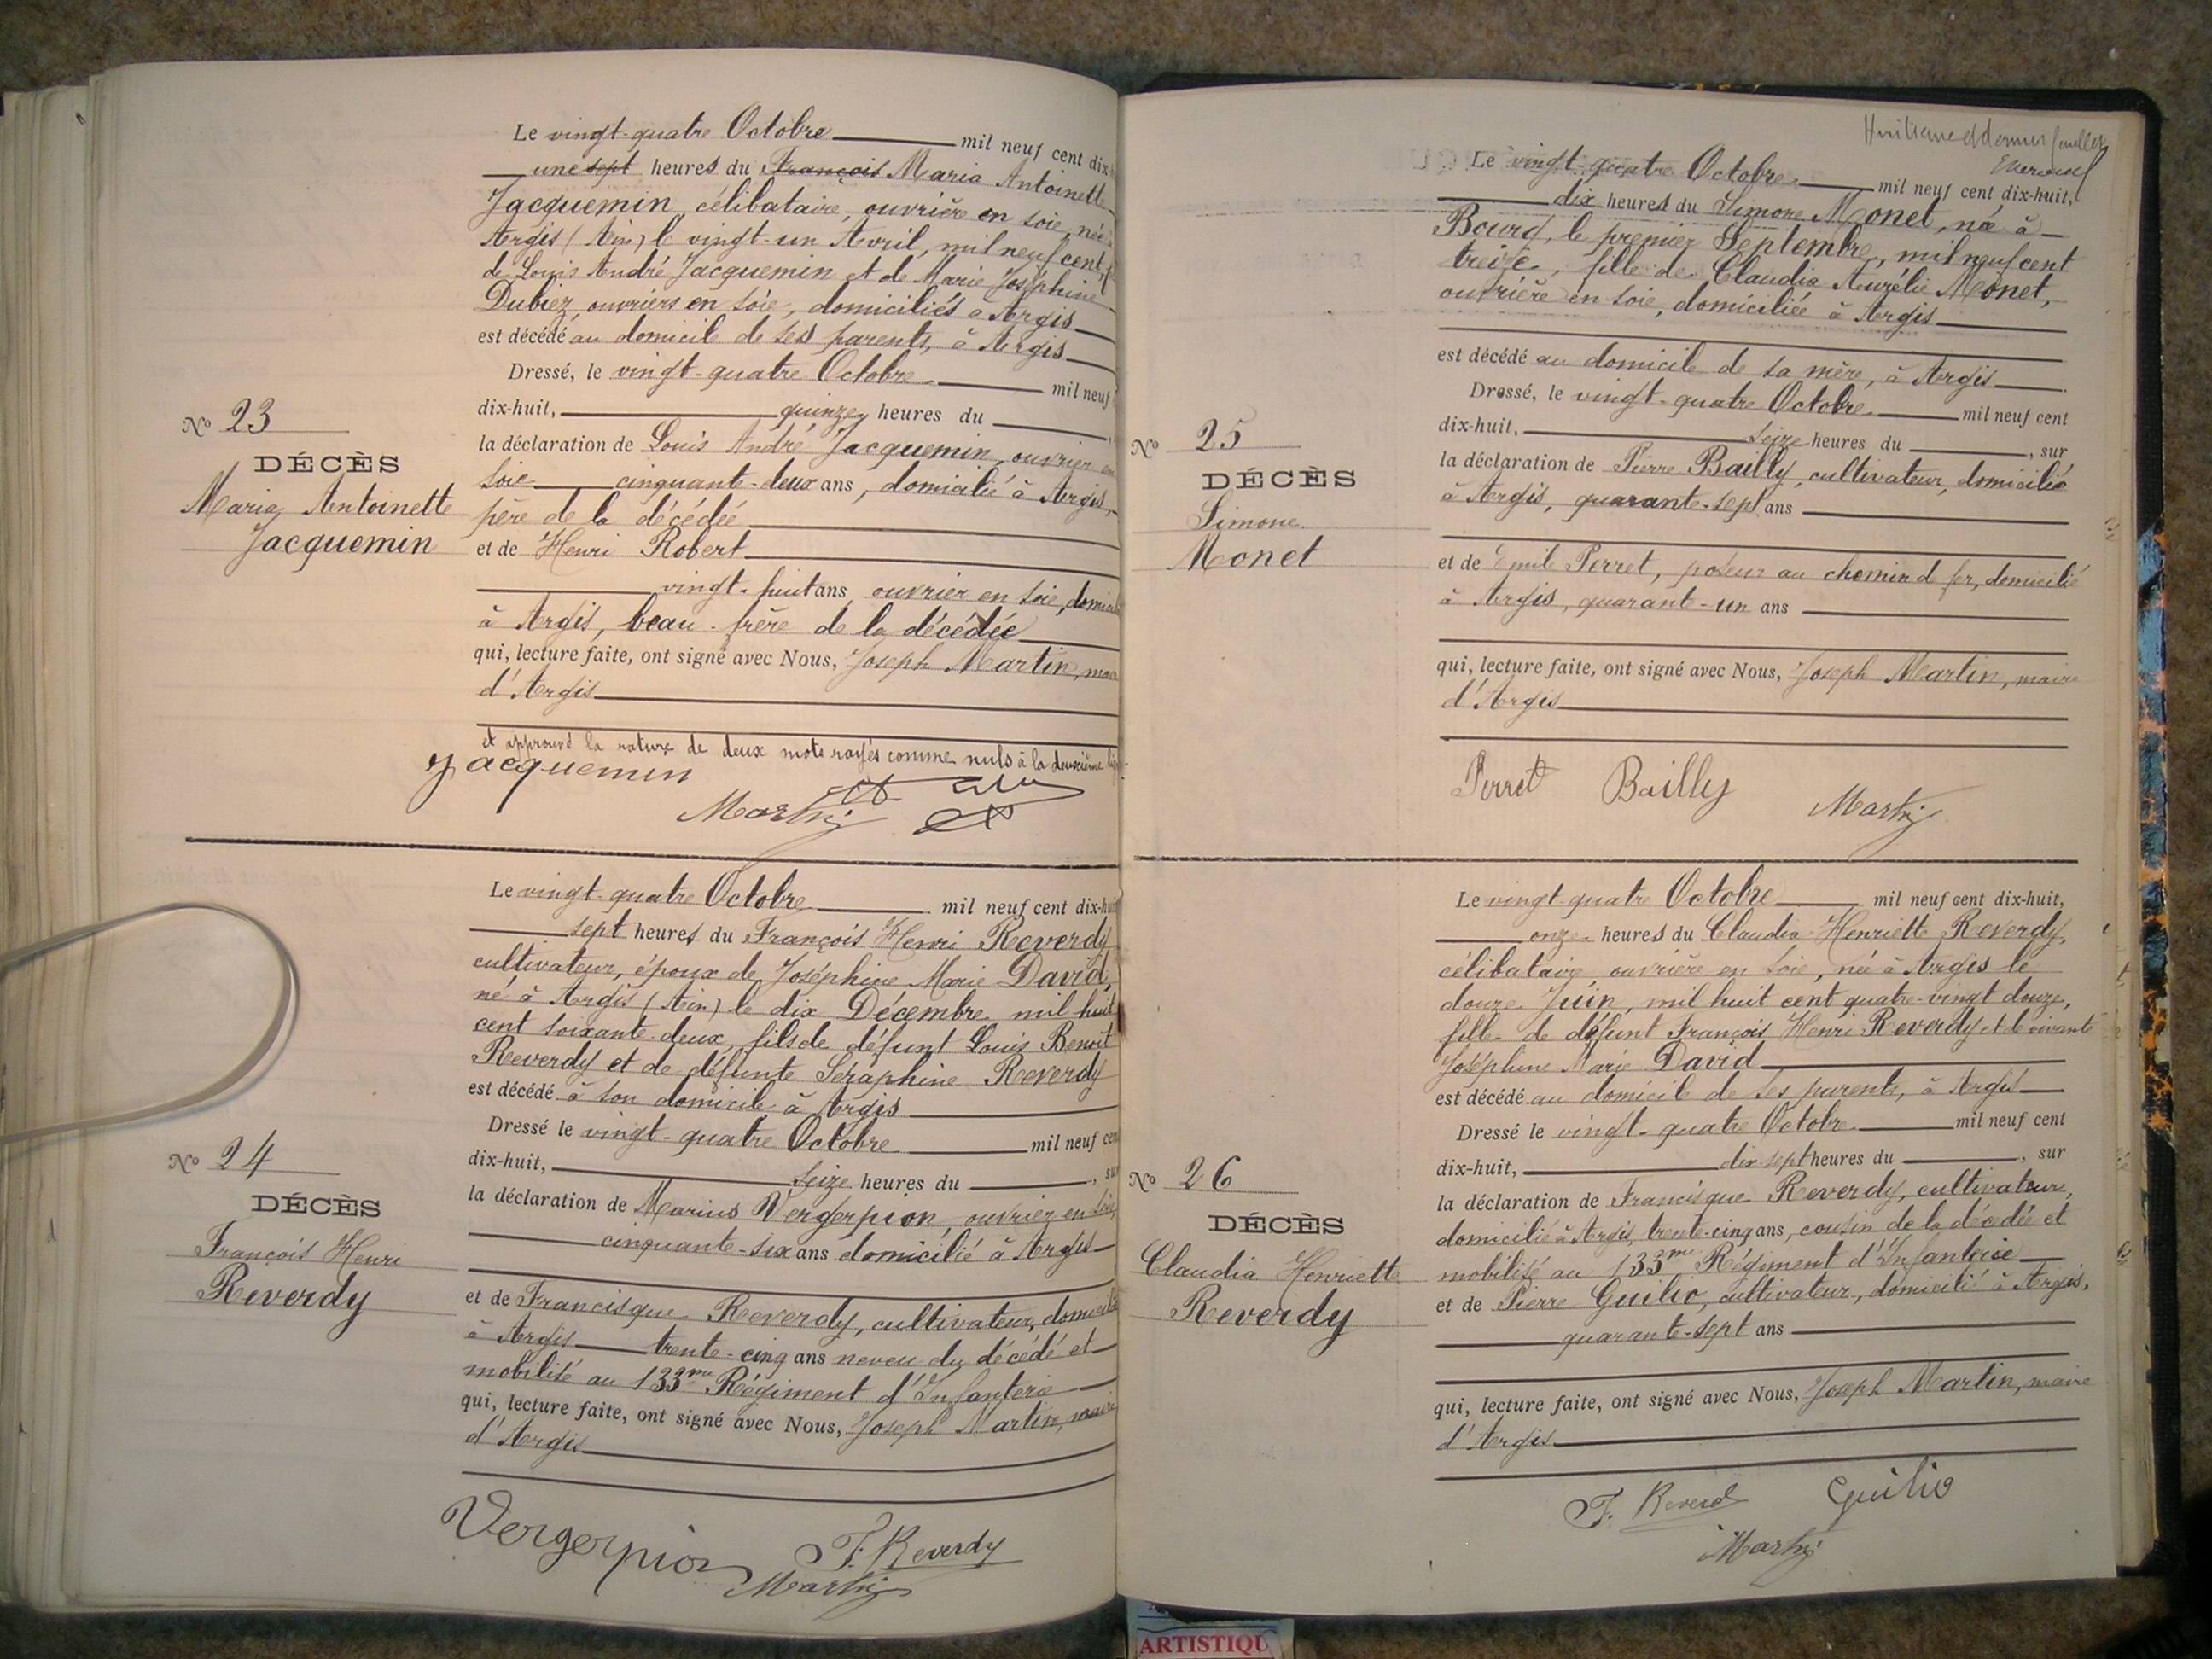 Le vingt-quatre Octobre mil neuf cent dix-
une sept heures du François Maria Antoinette
Jacquemin, célibataire, ouvrière en soie, née
Argis (Ain) le vingt-un Avril, mil neuf cent,
de Louis André Jacquemin et de Marie Joséphine
Dubiez, ouvriers en soie, domiciliés à Argis
est décédé au domicile de ses parents, à Argis
Dressé, le vingt-quatre Octobre mil neuf
dix-huit, quinze heures du
la déclaration de Louis André Jacquemin, ouvrier en
soie cinquante-deux ans, domicilié à Argis,
père de la décédée
et de Henri Robert
vingt-huit ans, ouvrier en soie,
à Argis, beau-frère de la décédée
qui, lecture faite, ont signé avec Nous, Joseph Martin,
d'Argis
et approuvé la rature de deux mots rayés comme nuls à la deuxième
Jacquemin
Martin
No 23
DÉCÈS
Maria Antoinette
Jacquemin
Le vingt-quatre Octobre mil neuf cent dix-huit
sept heures du François Henri Reverdy
cultivateur, époux de Joséphine Marie David,
né à Argis (Ain) le dix Décembre mil huit
cent soixante-deux, fils de défunt Louis Benoit
Reverdy et de défunte Séraphine Reverdy
est décédé à son domicile à Argis
Dressé le vingt-quatre Octobre mil neuf cent
dix-huit, seize heures du , sur
la déclaration de Marius Vergerpion, ouvrier en soie,
cinquante-six ans domicilié à Argis
et de Francisque Reverdy, cultivateur, domicilié
à Argis trente-cinq ans neveu du décédé et
mobilisé au 133me Régiment d'Infanterie
qui, lecture faite, ont signé avec Nous, Joseph Martin, maire
d'Argis
Vergerpion F. Reverdy
Martin
No 24
DÉCÈS
François Henri
Reverdy
Le vingt-quatre Octobre mil neuf cent dix-huit,
dix heures du Simone Monet, née à
Bourg, le premier Septembre, mil neuf cent
treize, fille de Claudia Aurélie Monet,
ouvrière en soie, domiciliée à Argis
est décédé au domicile de sa mère, à Argis
Dressé, le vingt-quatre Octobre mil neuf cent
dix-huit, seize heures du , sur
la déclaration de Pierre Bailly, cultivateur, domicilié
à Argis, quarante-sept ans
et de Emile Perret, poseur au chemin de fer, domicilié
à Argis, quarante-un ans
qui, lecture faite, ont signé avec Nous, Joseph Martin, maire
d'Argis
Perret Bailly Martin
No 25
DÉCÈS
Simone
Monet
Le vingt-quatre Octobre mil neuf cent dix-huit,
onze heures du Claudia Henriette Reverdy,
célibataire, ouvrière en soie, née à Argis le
douze Juin, mil huit cent quatre-vingt douze,
fille de défunt François Henri Reverdy et de vivante
Joséphine Marie David
est décédé au domicile de ses parents, à Argis
Dressé le vingt-quatre Octobre mil neuf cent
dix-huit, dix-sept heures du , sur
la déclaration de Francisque Reverdy, cultivateur,
domicilié à Argis, trente-cinq ans, cousin de la décédée et
mobilisé au 133me Régiment d'Infanterie
et de Pierre Guilio, cultivateur, domicilié à Argis,
quarante-sept ans
qui, lecture faite, ont signé avec Nous, Joseph Martin, maire
d'Argis
F. Reverdy Guilio
Martin
No 26
DÉCÈS
Claudia Henriette
Reverdy
ARTISTIQU